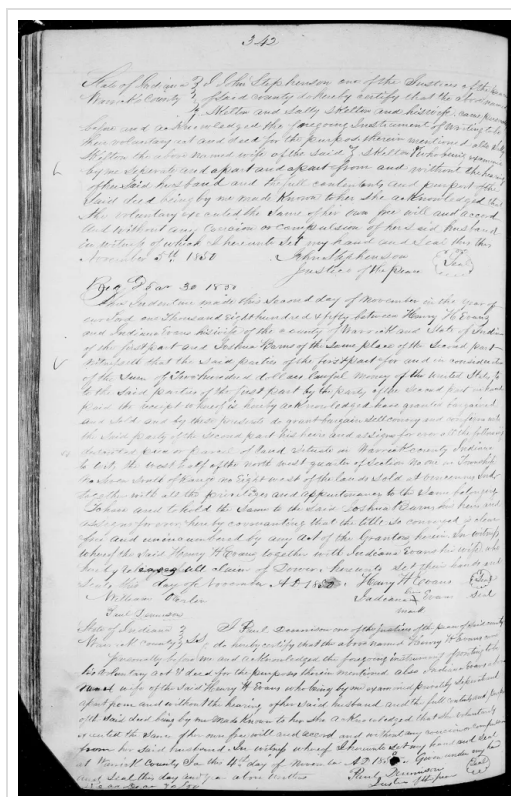 342
State of Indiana I John Stephenson one of the Justices of the
County of said County do hereby certify that the above named
Skelton and Sally Skelton his wife came
before and acknowledged the foregoing Instrument of writing to be
their voluntary act and deed for the purposes therein mentioned also Sally
Skelton the above named wife of the said Skelton Who being examined
by me seperate and apart and apart from and without the hearing
of her Said husband and the full contents and purport of the
said deed being by me made Known to her She acknowledged that
She voluntary executed the Same of her own free will and accord
and without any coercion or compulsion of her said husband
in witness of which I hereunto Set my hand and Seal this
November 5th 1850 John Stephenson Seal
Justice of the peace
30 1850
This Indenture made this Second day of November in the year of
our Lord one Thousand Eight hundred & fifty between Henry H Evans
and Indiana Evans his wife of the County of Warrick and State of Indiana
of the first part and Joshua Barns of the Same place of the Second part
Witnesseth that the Said parties of the first part for and in consideration
of the Sum of Two hundred dollars lawful money of the United States
to the Said parties of the first part by the party of the Second part in hand
paid the receipt whereof is hereby acknowledged have granted bargained
and Sold and by these presents do grant bargain Sell convey and confirm unto
the Said party of the Second part his heirs and assigns for ever all the following
described piece or parcel of land Situate in Warrick County Indiana
to wit, the west half of the north west quarter of Section No one in Township
No Seven South of Range No Eight west of the lands Sold at vincennes
together with all the privileges and appurtenances to the Same belonging
To have and to hold the Same to the Said Joshua Barns his heirs and
assigns forever, hereby covenanting that the title So conveyed is clear
free and unincumbered by any act of the Grantors herein In witness
whereof the Said Henry H Evans together with Indiana Evans his wife who
hereby releases all claim of Dower hereunto Set their hands and
Seals this day of November AD 1850 Henry H Evans Seal
William Indiana Evans Seal
Paul Dennison mark
State of Indiana I Paul Dennison one of the Justices of the peace of said county
County Sct do hereby certify that the above named Henry H Evans
personally before me and acknowledged the foregoing instrument of writing to be
his voluntary act & deed for the purposes therein mentioned also Indiana Evans
wife of the Said Henry H Evans who being by me examined privately Seperate and
apart from and without the hearing of her Said husband and the full contents
of the Said deed being by me made Known to her She acknowledged that She voluntarily
executed the Same of her own free will and accord and without any coercion or compulsion
from her Said husband In witness whereof I hereunto set my hand and Seal
at Warrick County Ia this 4th day of November AD 1850 Given under my hand
and Seal this day and year above written Paul Dennison Seal
Justice of the peace